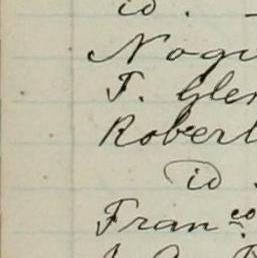 id. -
Nogu
T. Glen
Robert
id.
Fran^co.